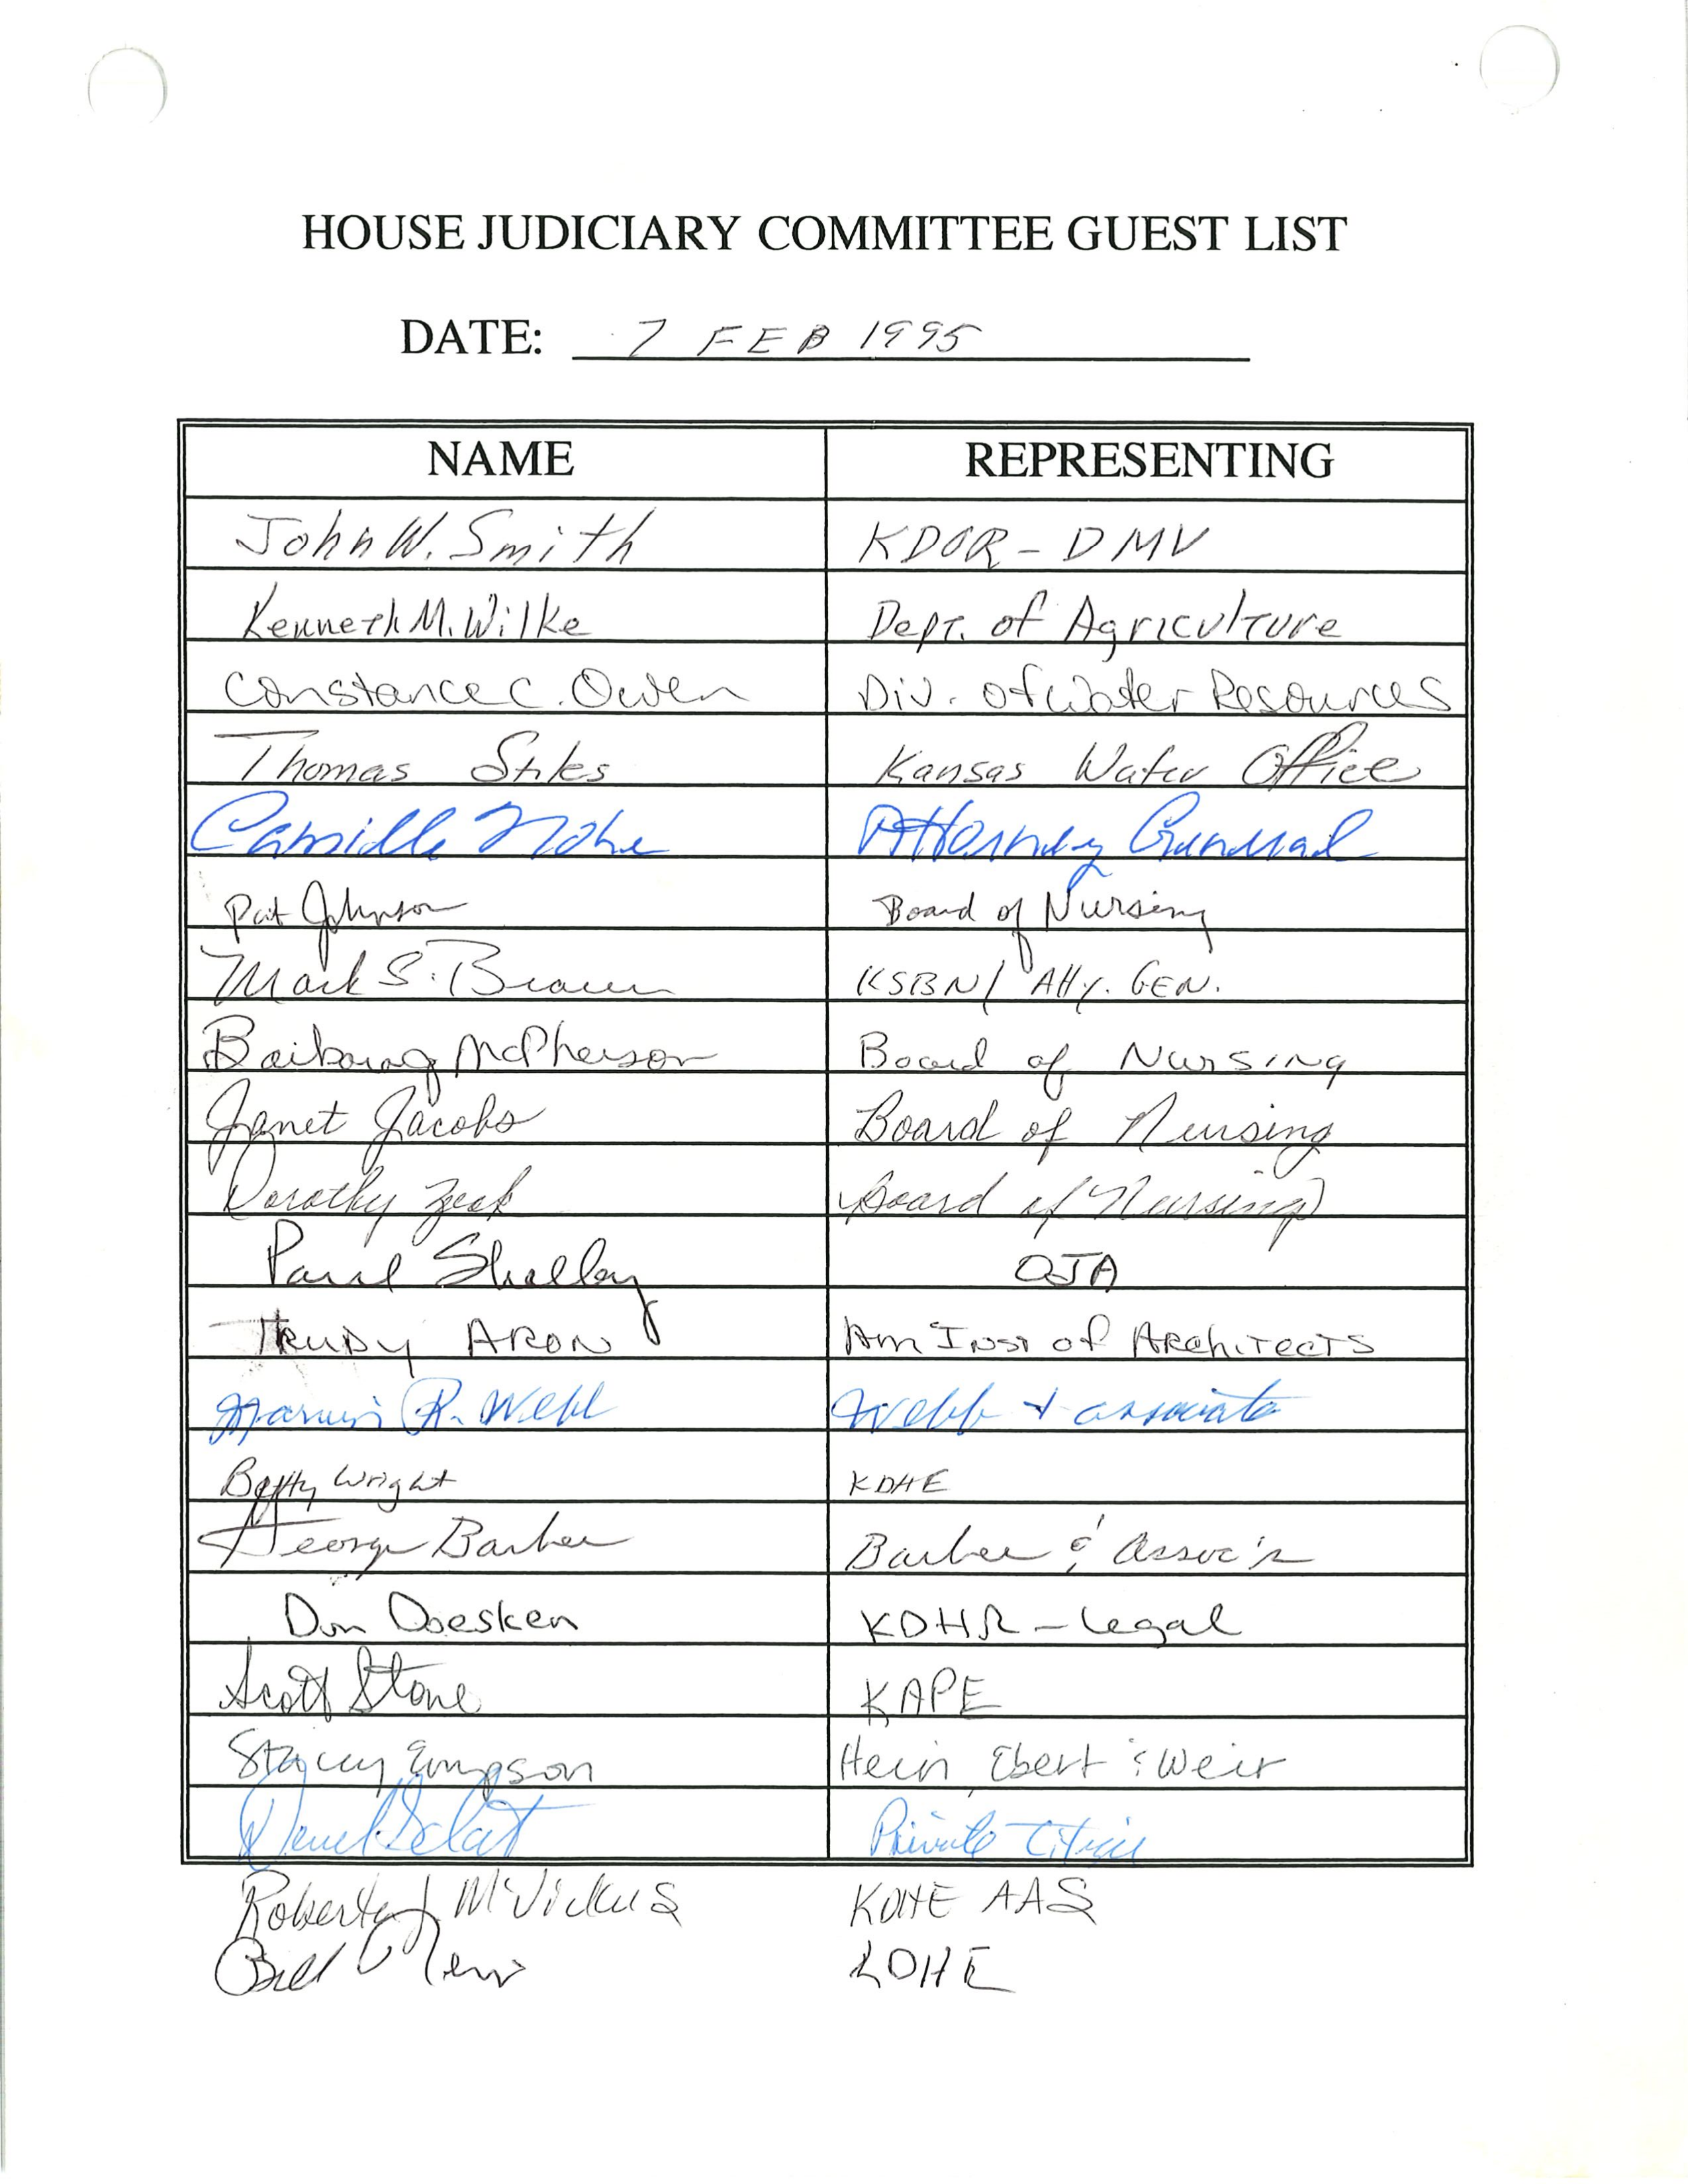 HOUSE JUDICIARY COMMITTEE GUEST LIST
DATE: 7 FEB 1995
NAME REPRESENTING
John W. Smith KDOR - DMV
Kenneth M. Wilke Dept. of Agriculture
Constance C. Owen Div. of Water Resources
Thomas Stiles Kansas Water Office
Camille Nohe Attorney General
Pat Johnson Board of Nursing
Mark S. Braun KSBN / Atty. GEN.
McPherson Board of Nursing
Janet Jacobs Board of Nursing
Dorothy Zook Board of Nursing
Paul Shelby OJA
TRUDY ARON Am Inst of Architects
R. Webb Webb & associates
Betty Wright KDHE
George Barbee Barbee & Assoc's
Don Doesken KDHR - Legal
Scott Stone KAPE
Stacey Empson Hein, Ebert & Weir
Private Citizen
KDHE AAG
Bill KDHE